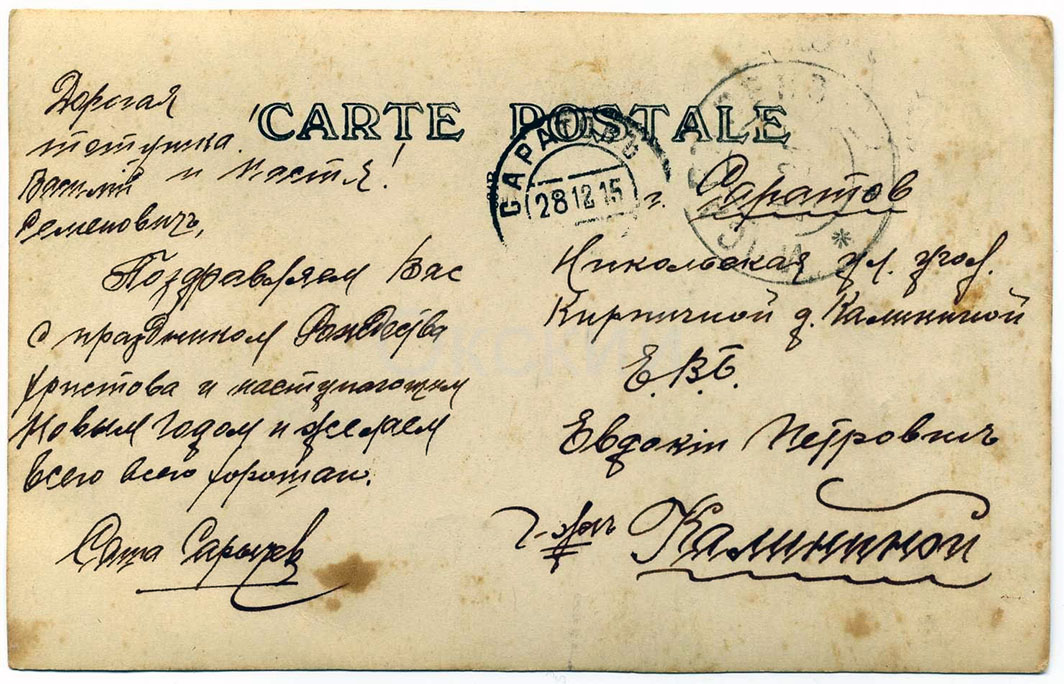 CARTE POSTALE
Дорогая
тетушка.
Василий и Настя!
Семеновичъ,
Поздравляем Вас
с праздником Рождества
Христова и наступающим
Новым годом и желаем
всего всего хорошаго.
Саша
САРАТОВЪ
28 12 15
г. Саратов
Никольская ул. угол.
Кирпичной д. Калининой
Е. В. Б.
Евдокіи Петровнъ
Калининой